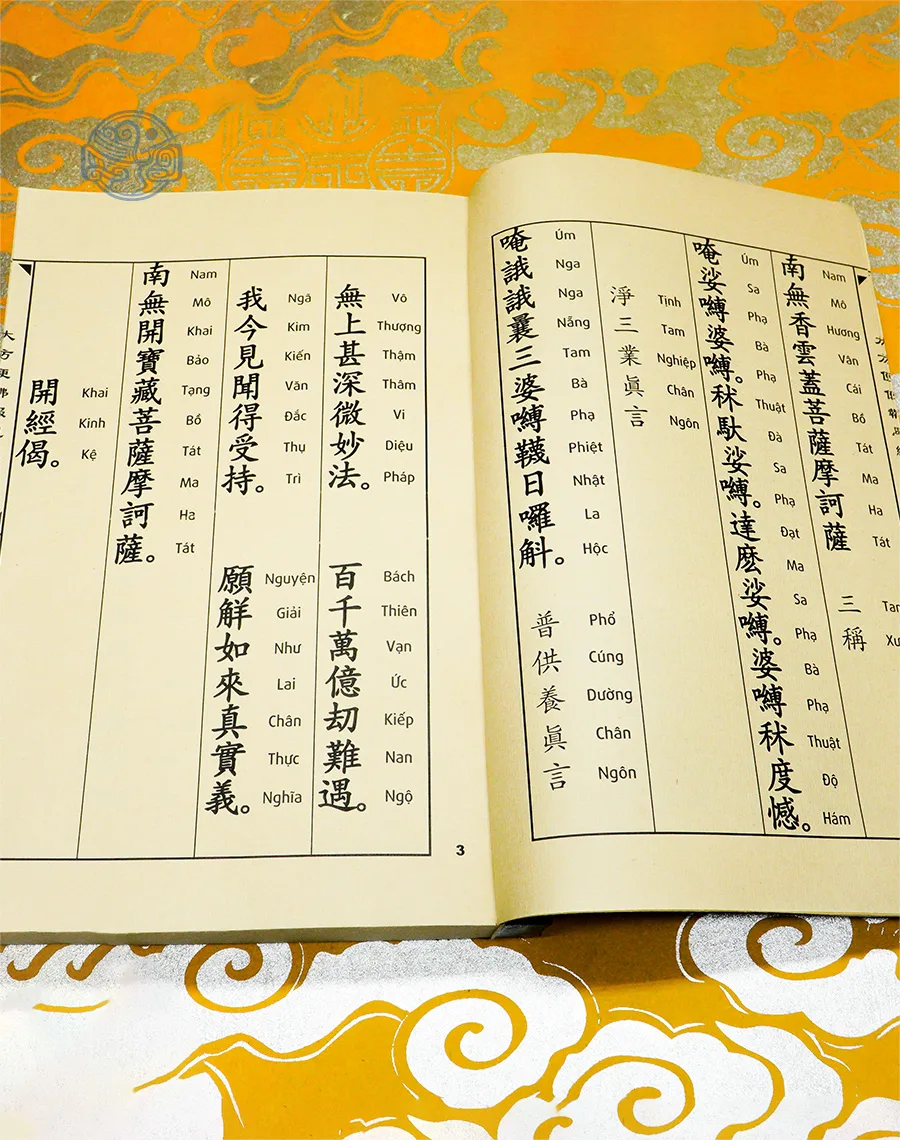 南無香雲蓋菩薩摩訶薩 三稱
Nam Mô Hương Vân Cái Bồ Tát Ma Ha Tát
唵娑嚩婆嚩。秫馱娑嚩。達麽娑嚩。婆嚩秫度憾。
Úm Sa Phạ Bà Phạ Thuật Đà Sa Phạ Đạt Ma Sa Phạ Bà Phạ Thuật Độ Hám
淨三業眞言
Tịnh Tam Nghiệp Chân Ngôn
唵誐誐曩三婆嚩韈日囉斛。 普供養眞言
Úm Nga Nga Nẵng Tam Bà Phạ Phiệt Nhật La Hộc Phổ Cúng Dường Chân Ngôn
無上甚深微妙法。 百千萬億刧難遇。
Vô Thượng Thậm Thâm Vi Diệu Pháp Bách Thiên Vạn Ức Kiếp Nan Ngộ
我今見聞得受持。 願觧如來真實義。
Ngã Kim Kiến Văn Đắc Thụ Trì Nguyện Giải Như Lai Chân Thực Nghĩa
南無開寶藏菩薩摩訶薩。
Nam Mô Khai Bảo Tạng Bồ Tát Ma Ha Tát
開經偈。
Khai Kinh Kệ
大方便佛
3